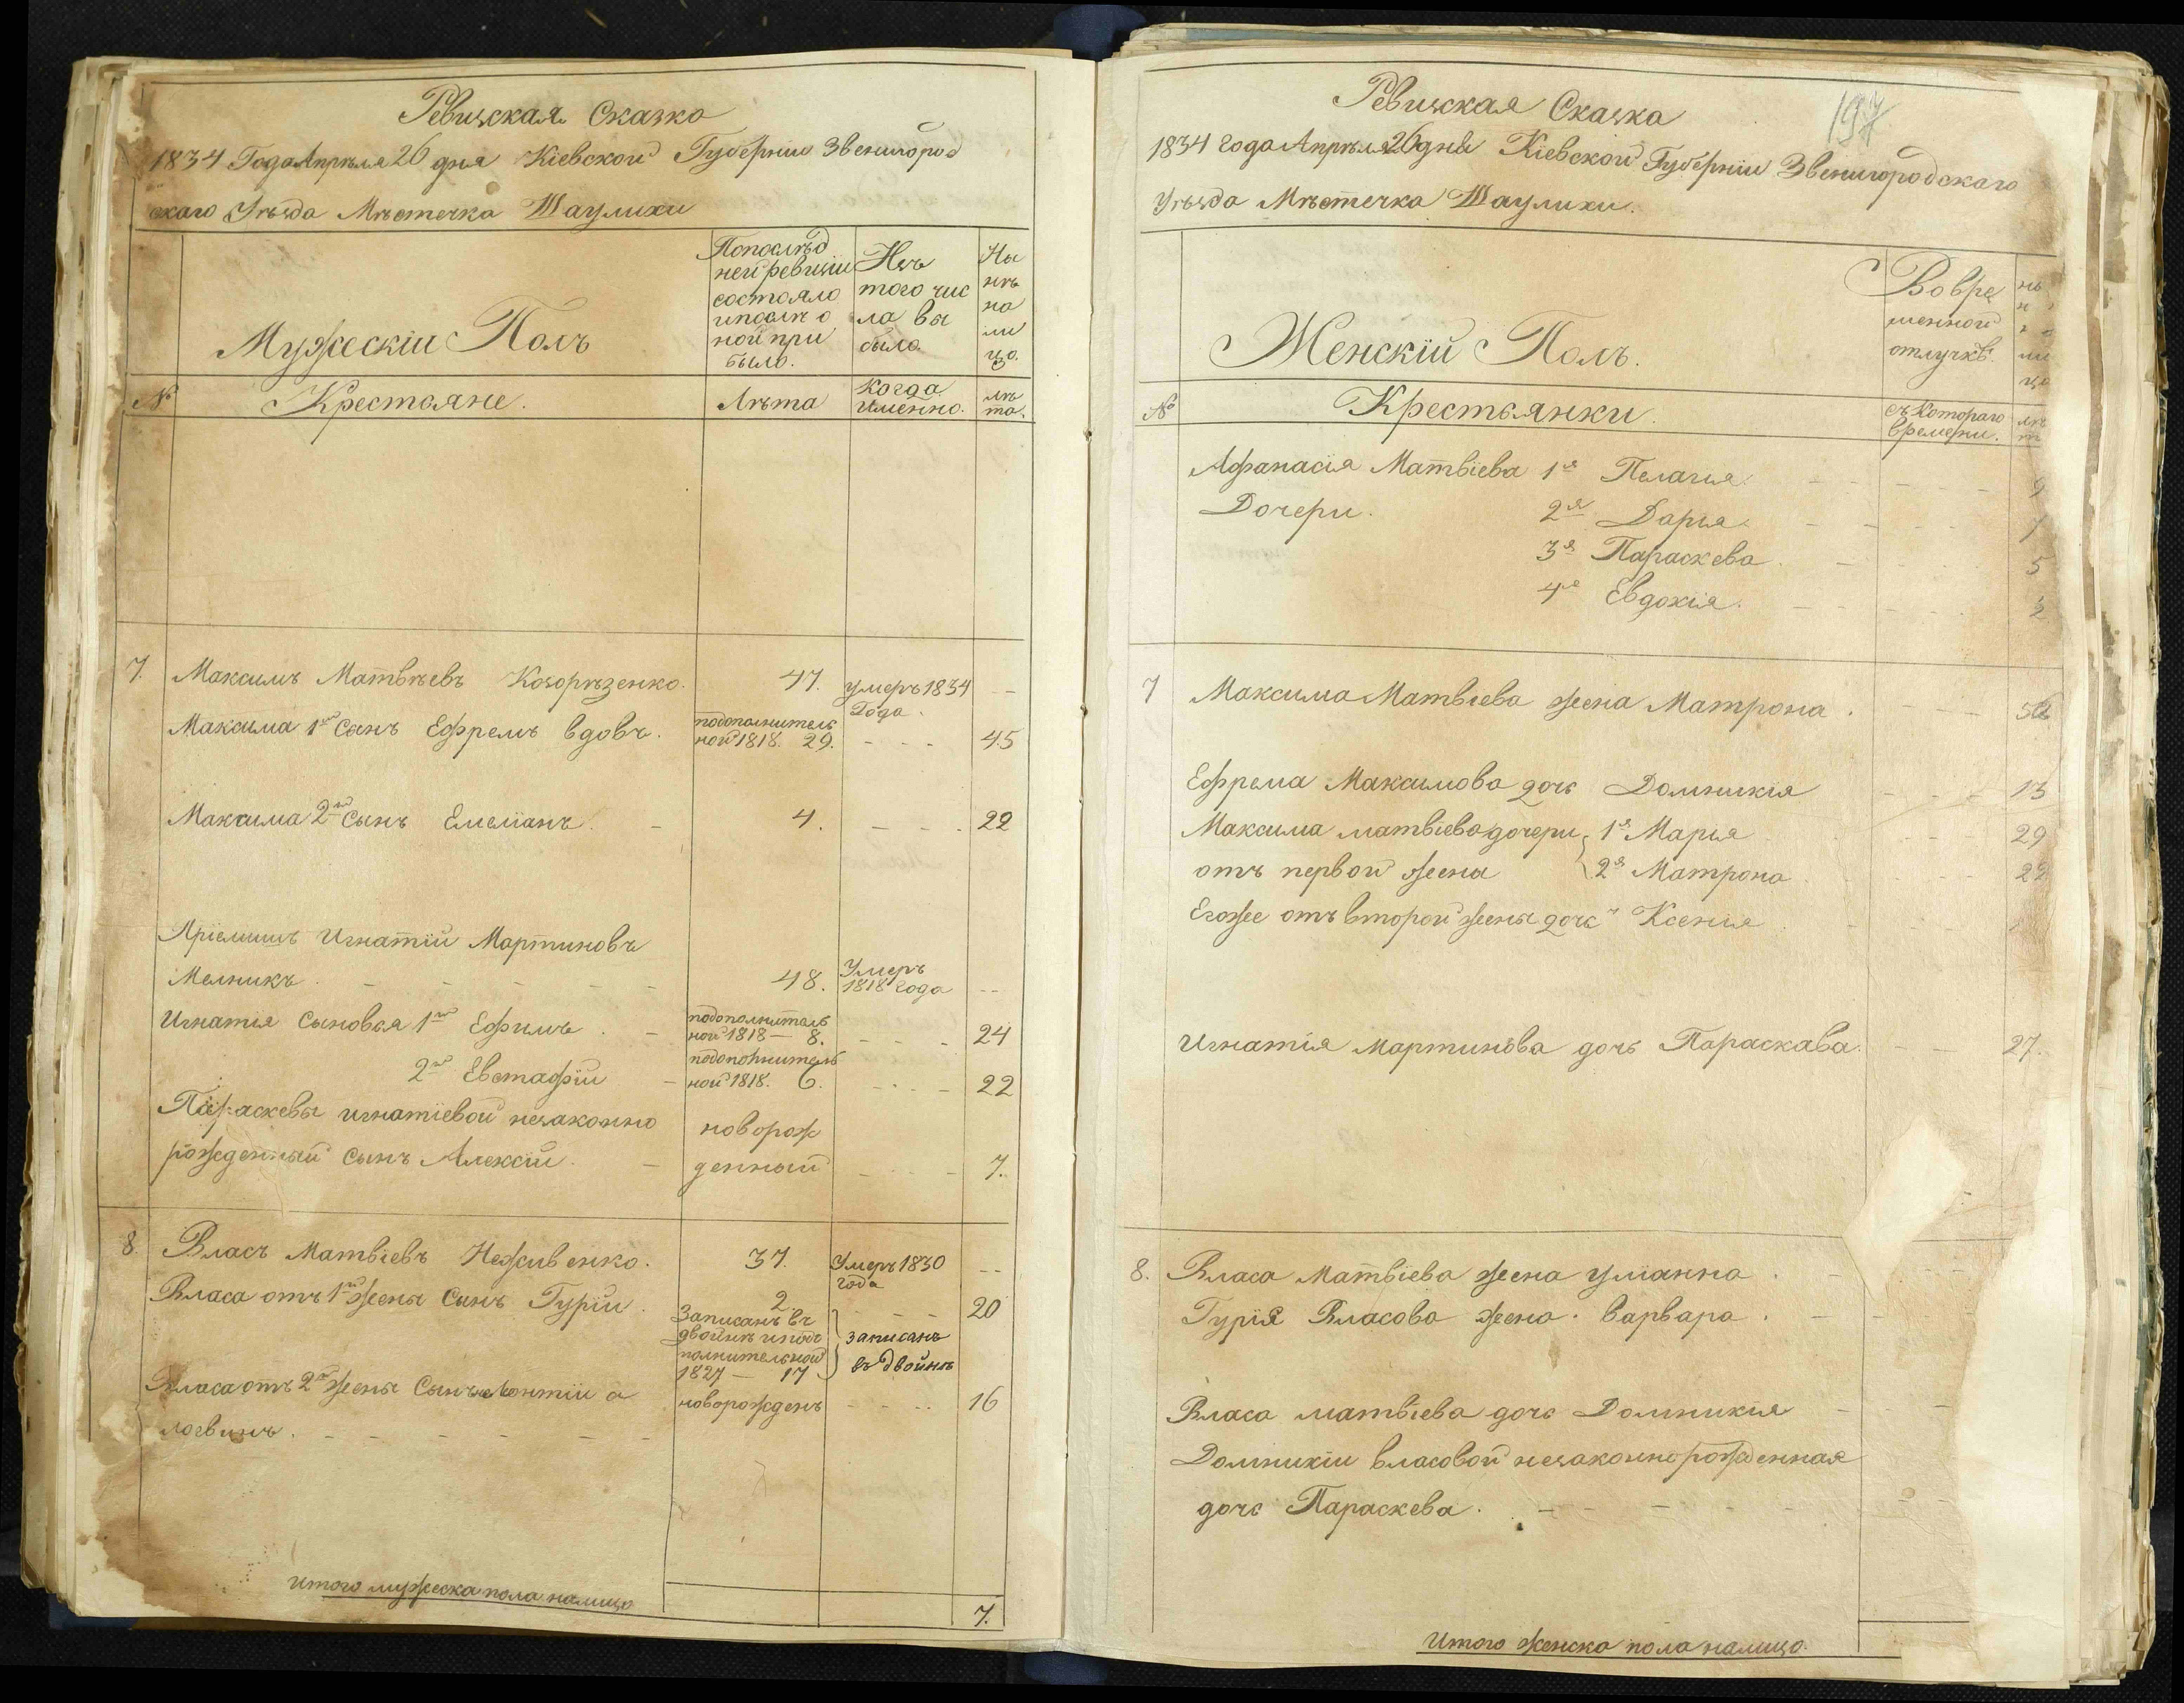 Ревизская Сказка
1834 Года Апреля 26 дня Кіевской Губерніи Звенигород
скаго Уѣзда Мѣстечка Шаулихи
Мужескій Полъ
Попослѣд
ней ревизіи
состояло
и послѣ о
ной при
было.
Изъ
того чис
ла вы
было.
Ны
нѣ
на
ли
цо.
№
Крестьяне.
Лѣта
Когда
именно.
лѣ
та.
7. Максимъ Матвѣевъ Козорѣзенко. 47. умеръ 1834 --
Года.
Максима 1й Сынъ Ефремъ вдовъ. подополнитель
ной 1818. 29. - - - 45
Максима 2й Сынъ Емеліанъ. - 4. - - - 22
Пріемышъ Игнатій Мартиновъ
Мелникъ. - - - - - 48. Умеръ
1818 года --
Игнатія Сыновья 1й Ефимъ. - подополнитель
ной 1818 — 8. - - - 24
2й Евстафій - подополнитель
ной 1818. 6. - - - 22
Параскевы игнатіевой незаконно
рожденный сынъ Алексій. - новорож
денный - - - 7.
8. Власъ Матвіевъ Неживенко. 37. Умеръ 1830 --
года
Власа отъ 1й жены Сынъ Гурій. 2 - - - 20
Записанъ въ
двойнѣ и подо
полнительной
1827 — 17
записанъ
въ двойнѣ
Власа отъ 2й жены Сынъ Леонтій а новорожденъ - - - 16
логвинъ. - - - - - -
Итого мужеска пола налицо 7.
197
Ревизская Сказка
1834 года Апрѣля 26 дня Кіевской Губерніи Звенигородскаго
Уѣзда Мѣстечка Шаулихи.
Женскій Полъ.
Во вре
менной
отлучкѣ.
ли
цо
№
Крестьянки.
съ Котораго
времени.
лѣ
т
Афанасія Матвіева 1я Пелагія. 9
Дочери. 2я Дарія.
3я Параскева. 5
4я Евдокія. 2
7 Максима Матвіева жена Матрона.
Ефрема Максимова дочь Домникія - - - 13
Максима матвіева дочери 1я Марья - - - 29
отъ первой жены 2я Матрона - - - 22
Егоже отъ второй жены дочь Ксенія
Игнатія мартинова дочь Параскава. - - 27.
8. Власа Матвіева жена уліанна. -
Гурія Власова жена. варвара. - -
Власа матвіева дочь Домникія - - -
Домникіи власовой незаконнорожденная
дочь Параскева. - - - - -
Итого женска пола налицо.